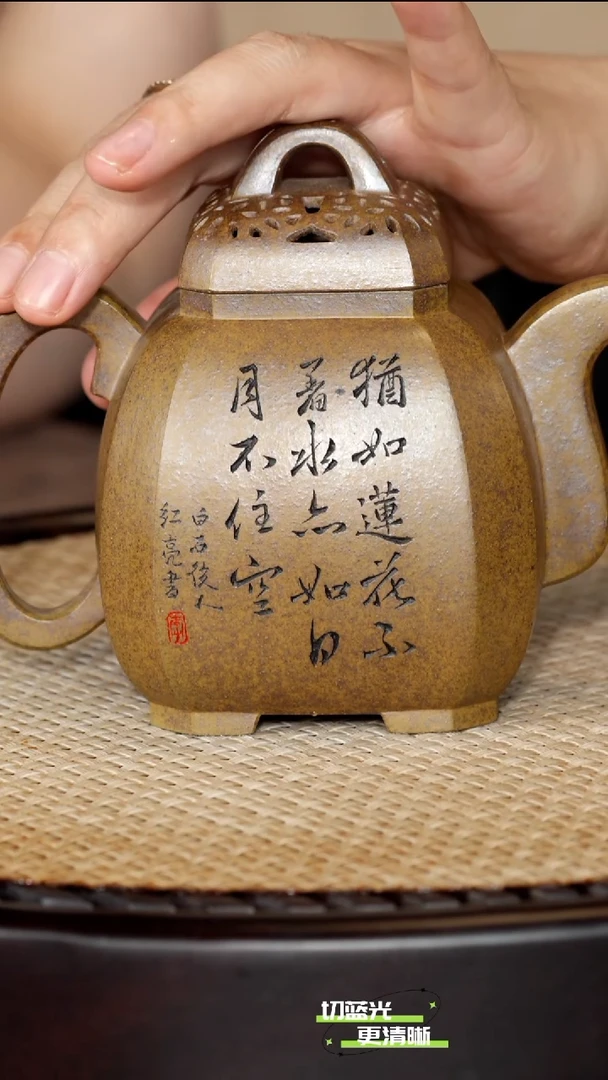 猶如蓮花不
着水亦如日
月不住空
白石後人
紅亮書
切蓝光
更清晰